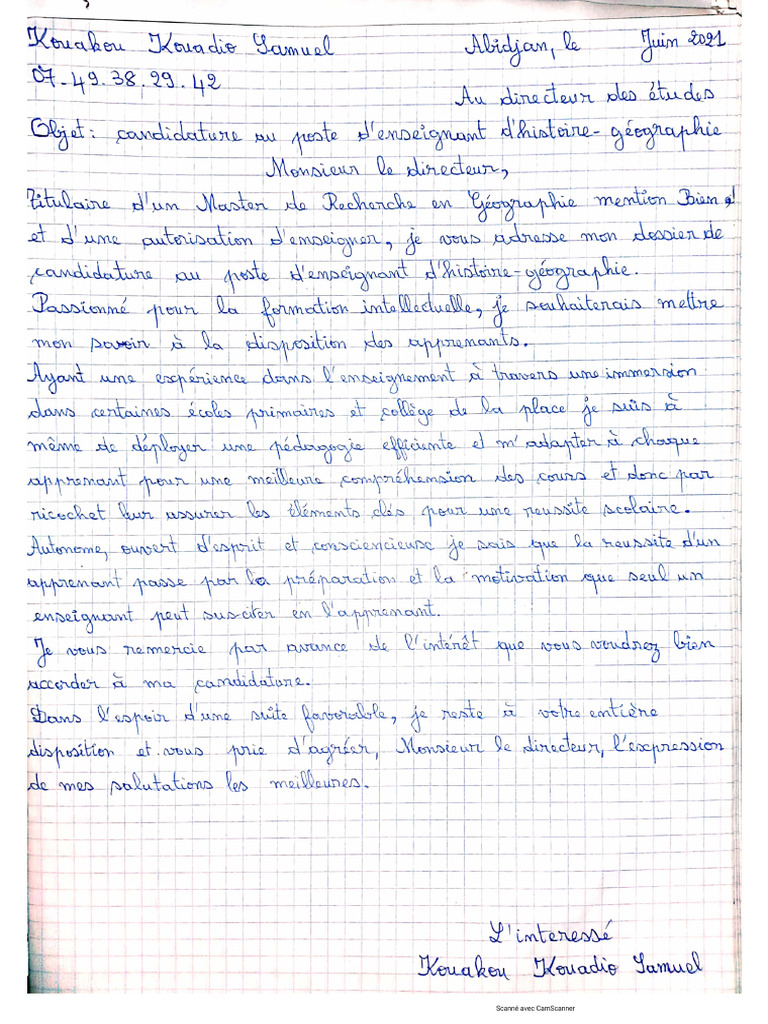 Kouakou Kouadio Samuel Abidjan, le Juin 2021
07.49.38.29.42
Au directeur des études
Objet: candidature au poste d'enseignant d'histoire-géographie
Monsieur le directeur,
Titulaire d'un Master de Recherche en Géographie mention Bien
et d'une autorisation d'enseigner, je vous adresse mon dossier de
candidature au poste d'enseignant d'histoire-géographie.
Passionné pour la formation intellectuelle, je souhaiterais mettre
mon savoir à la disposition des apprenants.
Ayant une expérience dans l'enseignement à travers une immersion
dans certaines écoles primaires et collège de la place je suis à
même de déployer une pédagogie efficiente et m'adapter à chaque
apprenant pour une meilleure compréhension des cours et donc par
ricochet leur assurer les éléments clés pour une reussite scolaire.
Autonome, ouvert d'esprit et consciencieux je sais que la reussite d'un
apprenant passe par la préparation et la motivation que seul un
enseignant peut susciter en l'apprenant.
Je vous remercie par avance de l'intérêt que vous voudrez bien
accorder à ma candidature.
Dans l'espoir d'une suite favorable, je reste à votre entière
disposition et vous prie d'agréer, Monsieur le directeur, l'expression
de mes salutations les meilleures.
L'interessé
Kouakou Kouadio Samuel
Scanné avec CamScanner